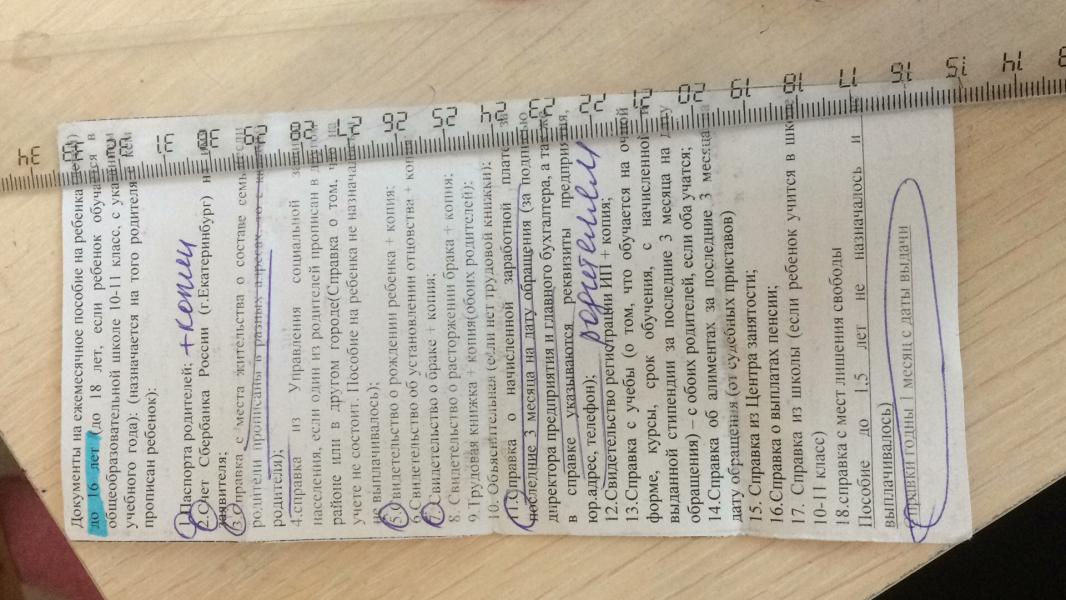 Документы на ежемесячное пособие на ребенка
до 16 лет (до 18 лет, если ребенок обучается в
общеобразовательной школе 10-11 класс, с указанием
учебного года): (назначается на того родителя с кем
прописан ребенок);
1.Паспорта родителей; + копии
2.Счет Сбербанка России (г.Екатеринбург) на
заявителя;
3.Справка с места жительства о составе семьи
родители прописаны в разных адресах, то с
родителя);
4.справка из Управления социальной
населения, если один из родителей прописан в другом
районе или в другом городе(Справка о том, что на
учете не состоит. Пособие на ребенка не назначалось
не выплачивалось);
5.Свидетельство о рождении ребенка + копия;
6.Свидетельство об установлении отцовства + копия
7.Свидетельство о браке + копия;
8. Свидетельство о расторжении брака + копия;
9.Трудовая книжка + копия(обоих родителей);
10. Объяснительная (если нет трудовой книжки);
11.Справка о начисленной заработной плате за
последние 3 месяца на дату обращения (за подписью
директора предприятия и главного бухгалтера, а также
в справке указываются реквизиты предприятия,
юр.адрес, телефон); родителям
12.Свидетельство регистрации ИП + копия;
13.Справка с учебы (о том, что обучается на очной
форме, курсы, срок обучения, с начисленной и
выданной стипендии за последние 3 месяца на дату
обращения) – с обоих родителей, если оба учатся;
14.Справка об алиментах за последние 3 месяца на
дату обращения (от судебных приставов)
15. Справка из Центра занятости;
16.Справка о выплатах пенсии;
17. Справка из школы (если ребенок учится в школе
10-11 класс)
18.справка с мест лишения свободы
Пособие до 1,5 лет не назначалось и не
выплачивалось)
Справки годны 1 месяц с даты выдачи
34 33 32 31 30 29 28 27 26 25 24 23 22 21 20 19 18 17 16 15 14